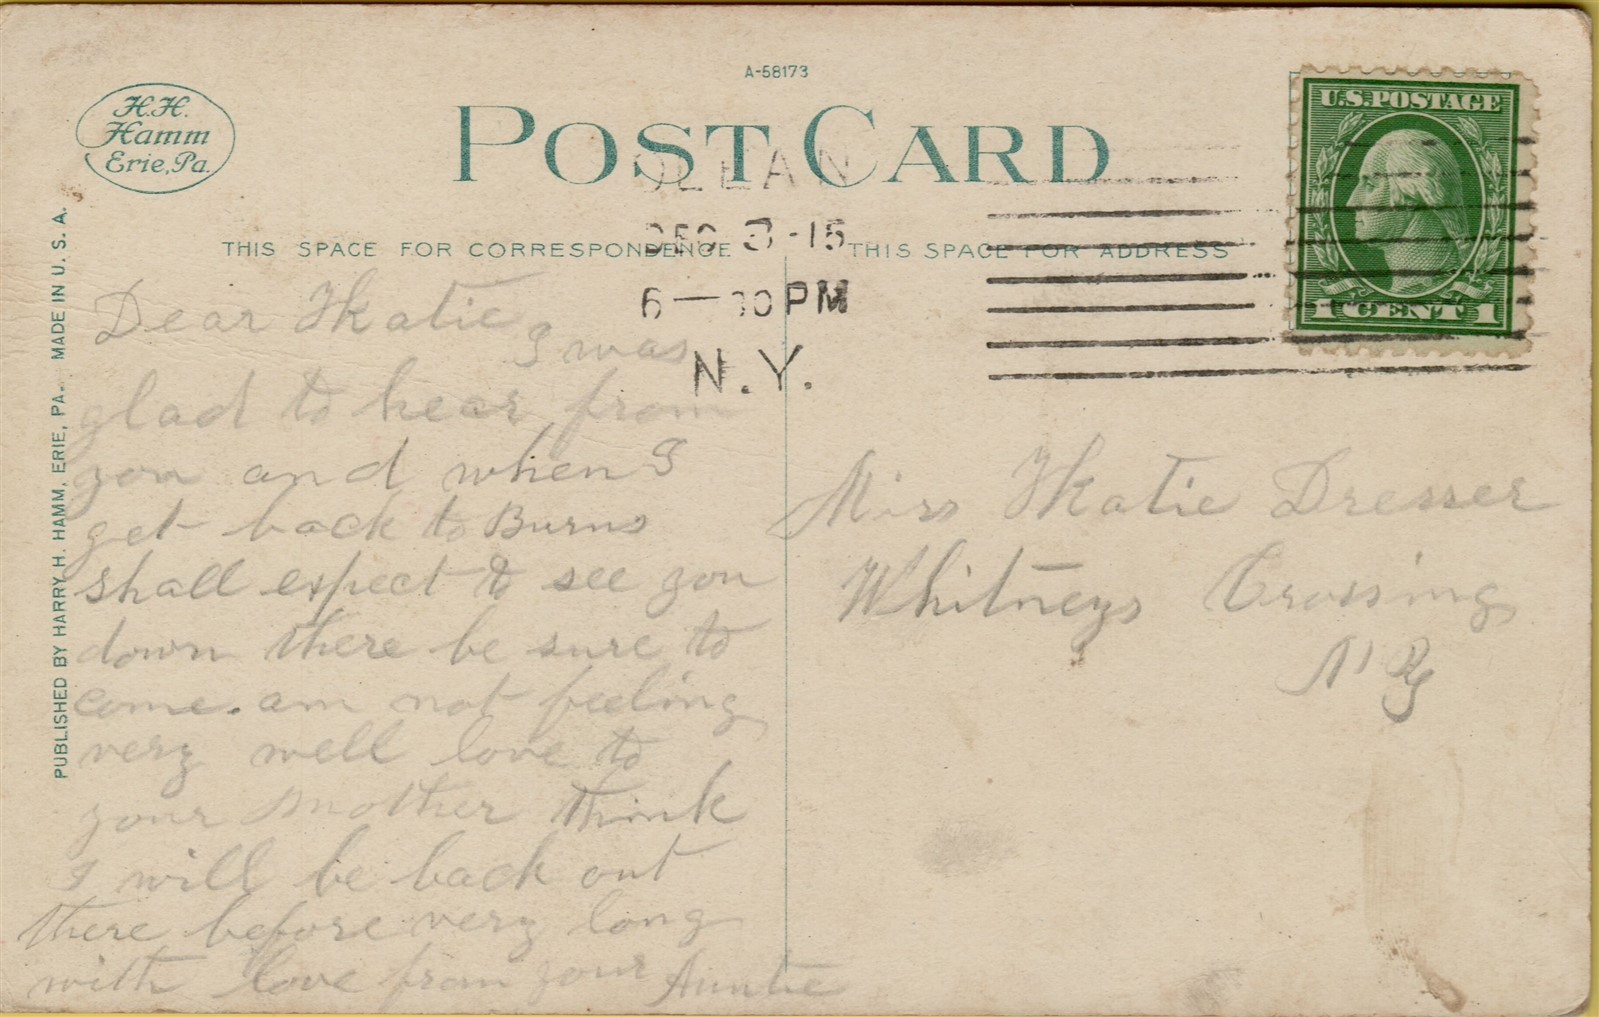 A-58173
H.H.
Hamm
Erie, Pa.
POST CARD
U.S. POSTAGE
1 CENT 1
OLEAN
DEC 3 - 15
6 — 30 PM
N.Y.
THIS SPACE FOR CORRESPONDENCE
THIS SPACE FOR ADDRESS
PUBLISHED BY HARRY H. HAMM, ERIE, PA. MADE IN U. S. A.
Dear Katie,
I was
glad to hear from
you and when I
get back to Burns
shall expect to see you
down there be sure to
come. am not feeling
very well love to
your Mother think
I will be back out
there before very long
with love from your Auntie
Miss Katie Dresser
Whitneys Crossing
N Y